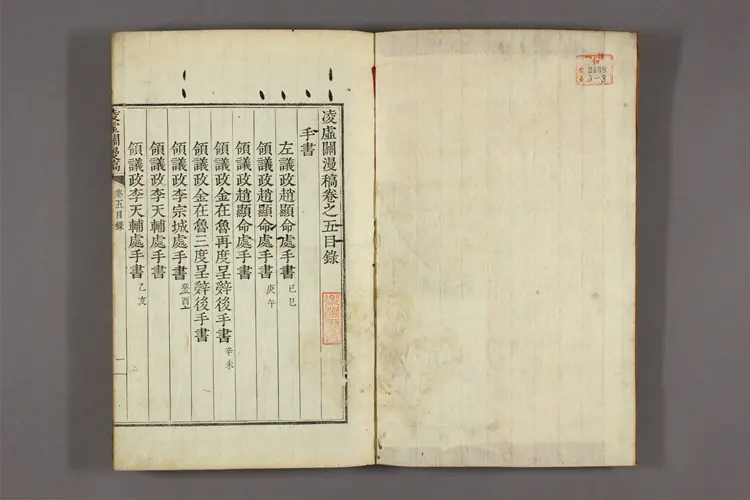 凌虛關漫稿卷之五目錄
手書
左議政趙顯命處手書 己巳
領議政趙顯命處手書 庚午
領議政趙顯命處手書
領議政金在魯再度呈辭後手書 辛未
領議政金在魯三度呈辭後手書
領議政李宗城處手書 癸酉
領議政李天輔處手書
領議政李天輔處手書 乙亥
凌虛關漫稿
卷五目錄
一
2698
5-3